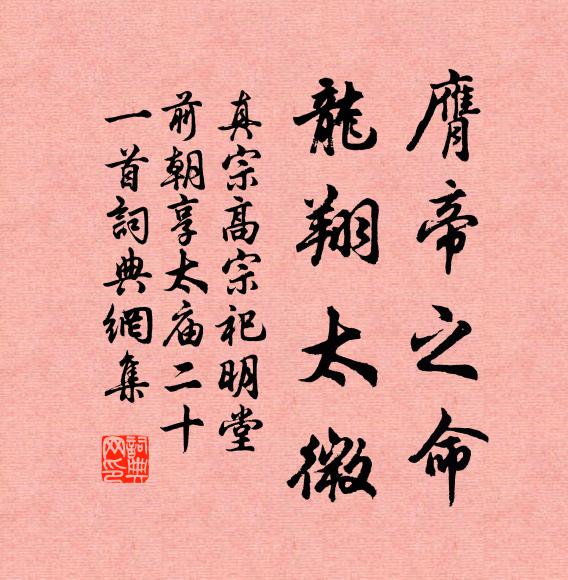 膺帝之命
龍翔太微
真宗高宗祀明堂
前朝享太庙二十
一首詞典網集
詞典
网印